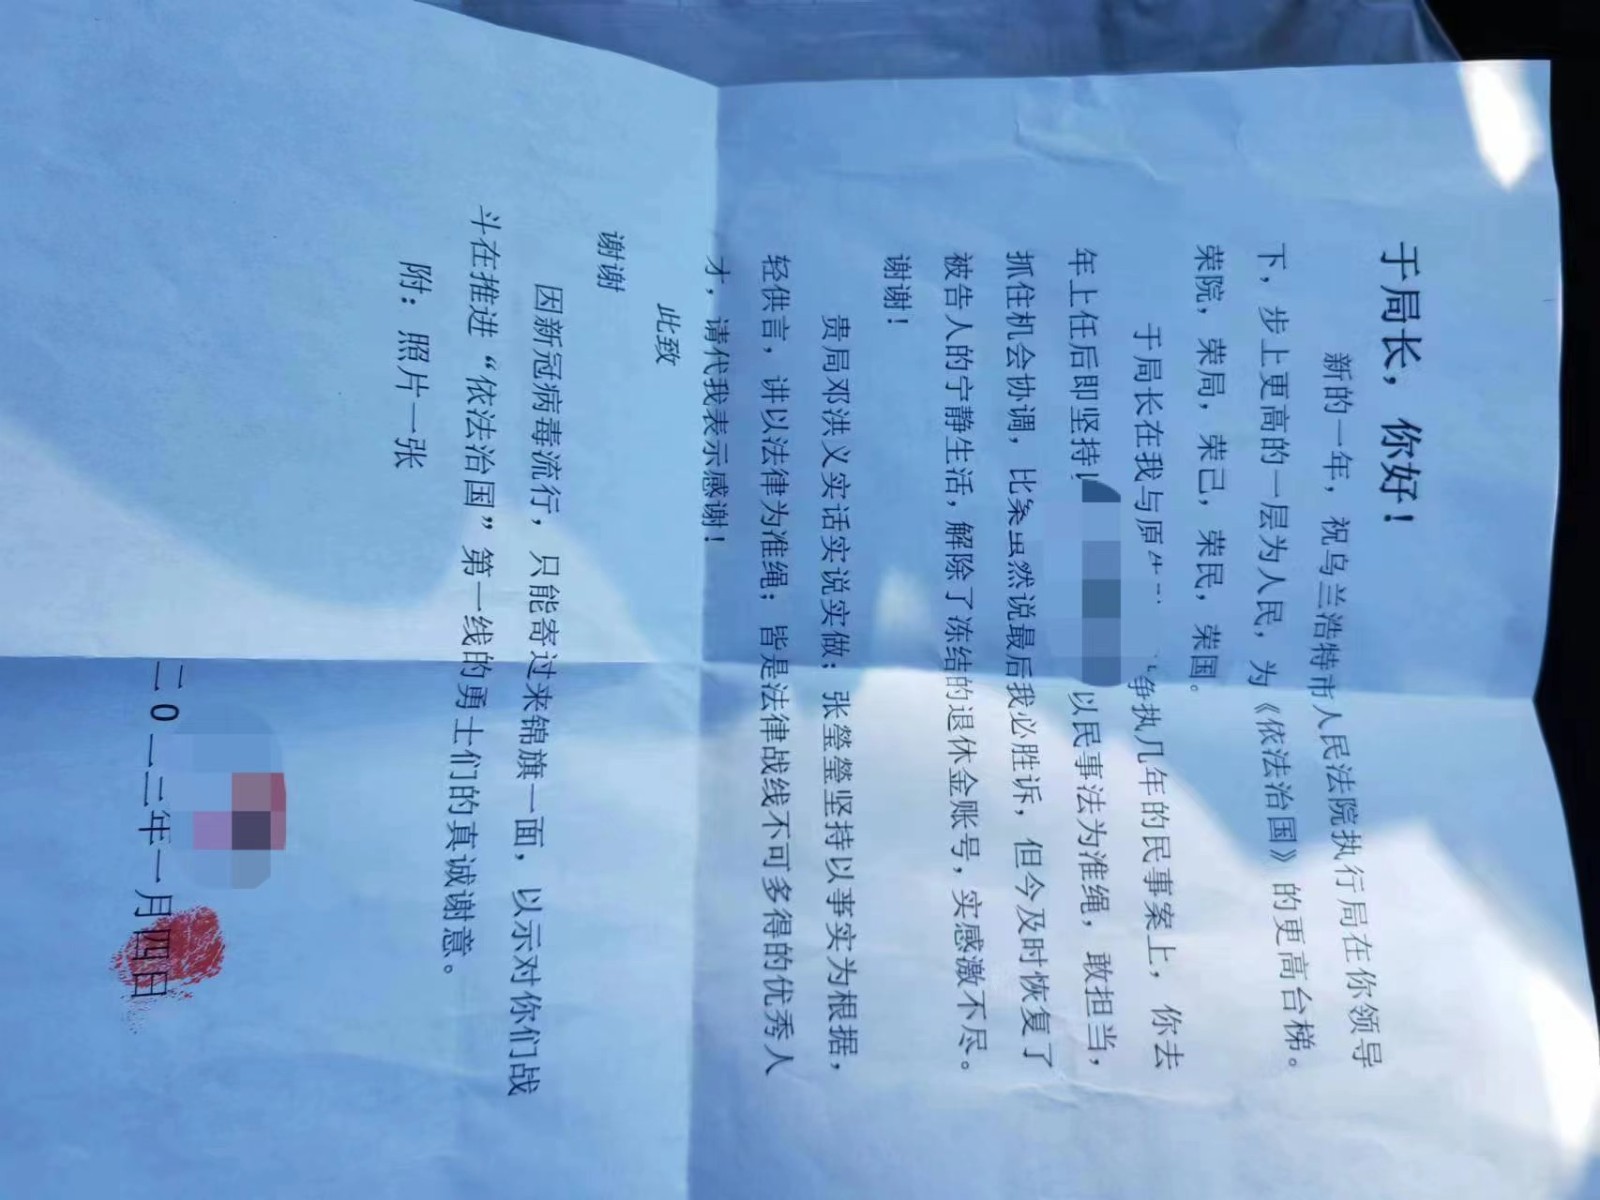 于局长，你好！
新的一年，祝乌兰浩特市人民法院执行局在你领导
下，步上更高的一层为人民，为《依法治国》的更高台梯。
荣院，荣局，荣己，荣民，荣国。
于局长在我与原 争执几年的民事案上，你去
年上任后即坚持 以民事法为准绳，敢担当，
抓住机会协调，比案虽然说最后我必胜诉，但今及时恢复了
被告人的宁静生活，解除了冻结的退休金账号，实感激不尽。
谢谢！
贵局邓洪义实话实说实做；张瑩瑩坚持以事实为根据，
轻供言，讲以法律为准绳；皆是法律战线不可多得的优秀人
才，请代我表示感谢！
此致
谢谢
因新冠病毒流行，只能寄过来锦旗一面，以示对你们战
斗在推进“依法治国”第一线的勇士们的真诚谢意。
附：照片一张
二0二三年一月四日